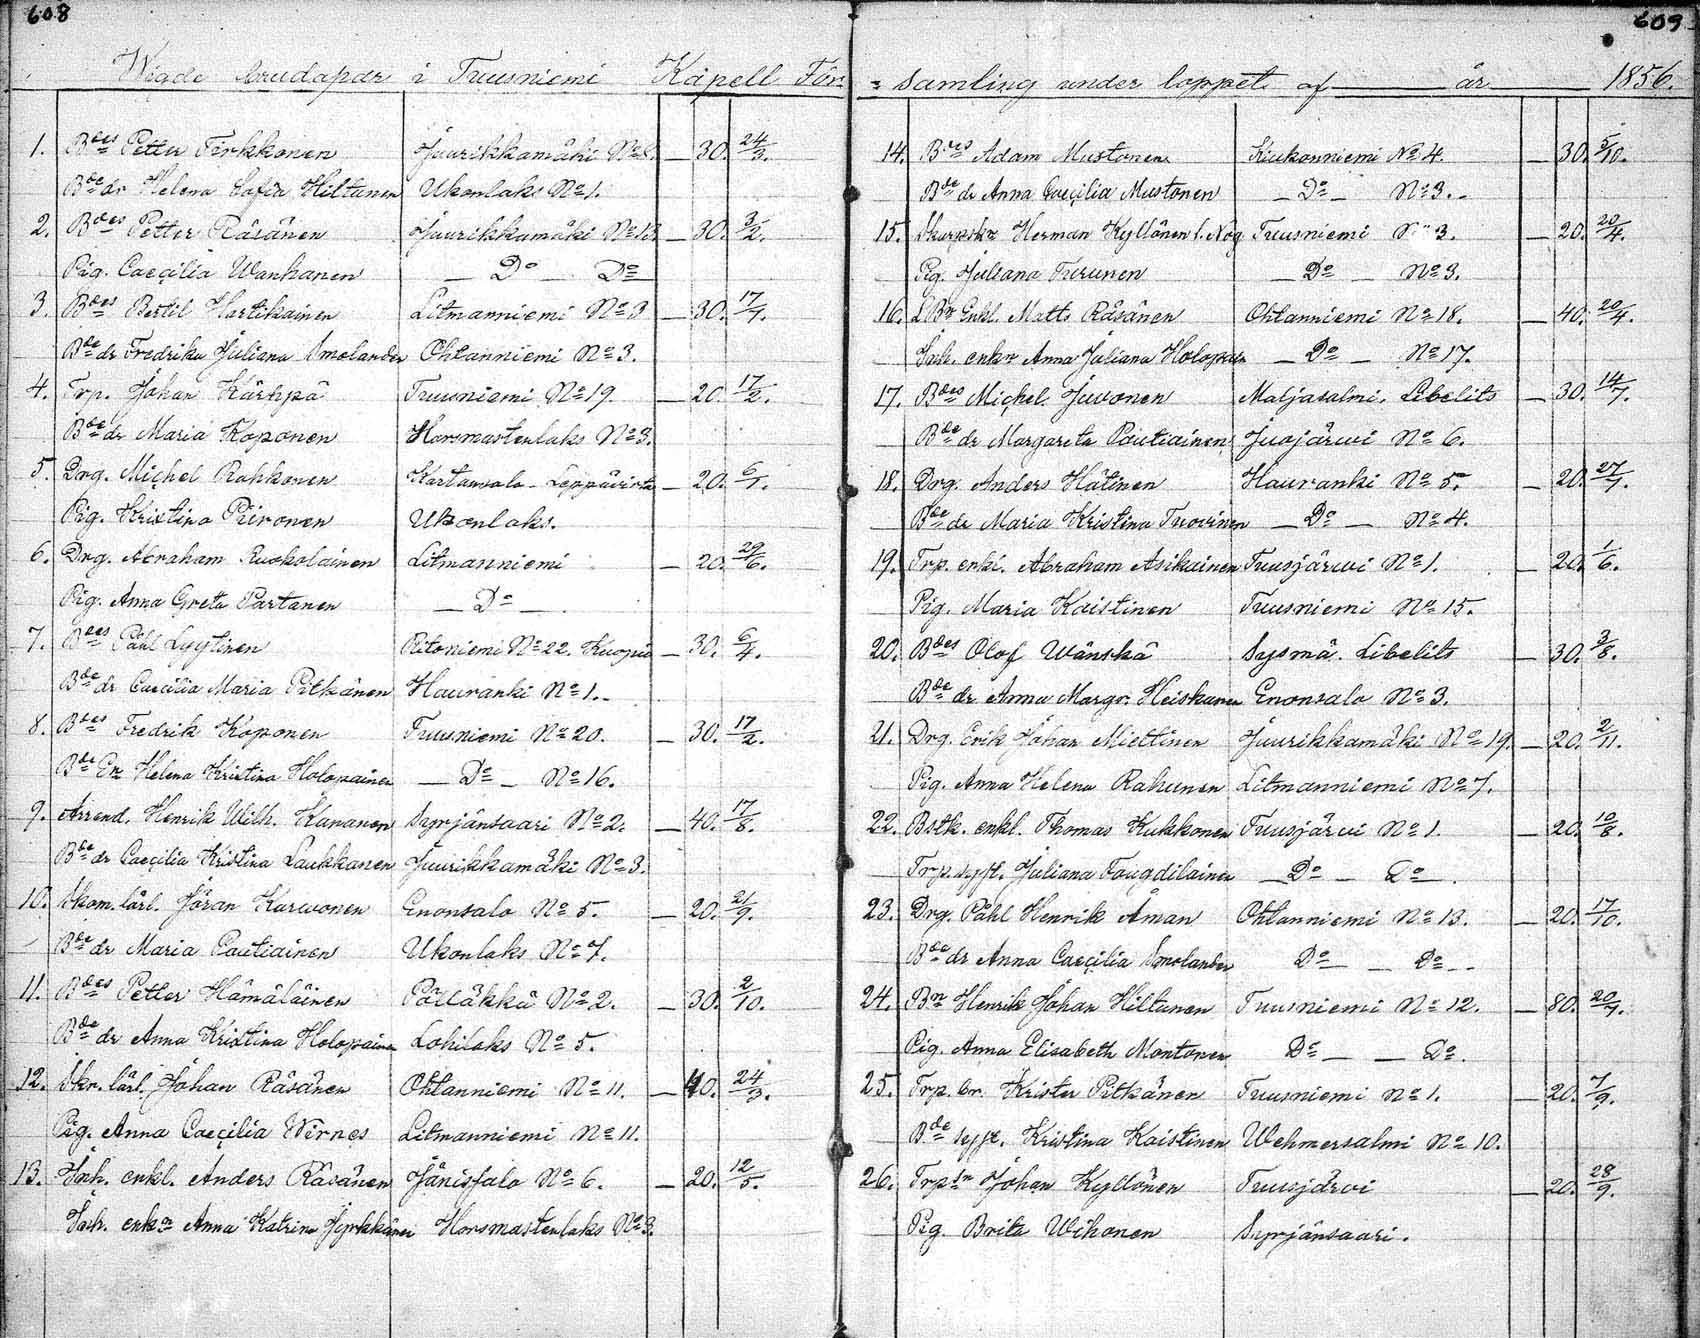 608
Wigde brudapar i Tuusniemi Kapell För-
1. Bdes Petter Tirkkonen Juurikkamäki No 8. — 30. 24/3.
Bde dr Helena Sofia Hiltunen Ukonlaks No 1.
2. Bdes Petter Räsänen Juurikkamäki No 13 — 30. 3/2.
Pig. Caeçilia Wanhanen — Do — Do
3. Bdes Bertil Hartikainen Litmanniemi No 3 — 30. 17/7.
Bde dr Fredrika Juliana Smolander Ohtanniemi No 3.
4. Trp. Johan Kärhpä Tuusniemi No 19. — 20. 17/2.
Bde dr Maria Koponen Horsmastenlaks No 3.
5. Drg. Michel Rahkonen Kartansalo - Leppävirta — 20. 6/7.
Pig. Kristina Piironen Ukonlaks.
6. Drg. Abraham Ruokolainen Litmanniemi — 20. 29/6.
Pig. Anna Greta Partanen — Do —
7. Bdes Påhl Lyytinen Ritoniemi No 22. Kuopio — 30. 6/4.
Bde dr Caecilia Maria Pitkänen Hauranki No 1.
8. Bdes Fredrik Koponen Tuusniemi No 20. — 30. 17/2.
Bde En Helena Kristina Holopainen — Do — No 16.
9. Arrend. Henrik Wilh. Kananen Syrjänsaari No 2. — 40. 17/8.
Bde dr Caeçilia Kristina Laukkanen Juurikkamäki No 3.
10. Skom. lärl. Jöran Karwonen Enonsalo No 5. — 20. 21/9.
Bde dr Maria Pautiainen Ukonlaks No 7.
11. Bdes Petter Hämäläinen Pölläkkä No 2. — 30. 2/10.
Bde dr Anna Kristina Holopainen Lohilaks No 5.
12. Skr. lärl. Johan Räsänen Ohtanniemi No 11. — 40. 24/3.
Pig. Anna Caeçilia Wirnes Litmanniemi No 11.
13. Inh. enkl. Anders Räsänen Jänissalo No 6. — 20. 12/5.
Inh. enkn Anna Katrina Jyrkkänen Horsmastenlaks No 3.
609
= samling under loppet af — år — 1856.
14. Bdes Adam Mustonen Kiukonniemi No 4. — 30. 5/10.
Bde dr Anna Caeçilia Mustonen — Do — No 3.
15. Herman Kyllönen Tuusniemi No 3. — 20. 20/4.
Pig. Juliana Turunen — Do — No 3.
16. Enkl. Matts Räsänen Ohtanniemi No 18. — 40. 20/4.
Inh. enkn Anna Juliana Holopain — Do — No 17.
17. Bdes Michel Juvonen Maljasalmi. Libelits — 30. 14/7.
Bde dr Margareta Pautiainen Juojärwi No 6.
18. Drg. Anders Hätinen Hauranki No 5. — 20. 27/7.
Bde dr Maria Kristina Tuovinen — Do — No 4.
19. Trp. enkl. Abraham Asikainen Tuusjärwi No 1. — 20. 1/6.
Pig. Maria Kaistinen Tuusniemi No 15.
20. Bdes Olof Wänskä Sysmä. Libelits — 30. 3/8.
Bde dr Anna Margr. Heiskanen Enonsalo No 3.
21. Drg. Erik Johan Miettinen Juurikkamäki No 19. — 20. 2/11.
Pig. Anna Helena Rahunen Litmanniemi No 7.
22. Bstk. enkl. Thomas Kukkonen Tuusjärwi No 1. — 20. 10/8.
Trp. syst. Juliana Fougdilainen — Do — Do —.
23. Drg. Påhl Henrik Åman Ohtanniemi No 13. — 20. 17/10.
Bde dr Anna Caeçilia Smolander Do — — Do —
24. Bn Henrik Johan Hiltunen Tuusniemi No 12. — 80. 20/7.
Pig. Anna Elisabeth Montonen Do — — Do.
25. Trp. br. Krister Pitkänen Tuusniemi No 1. — 20. 7/9.
Bde syst. Kristina Kaistinen Wehmersalmi No 10.
26. Trpsn Johan Kyllönen Tuusjärwi — 20. 28/9.
Pig. Brita Wihonen Syrjänsaari.